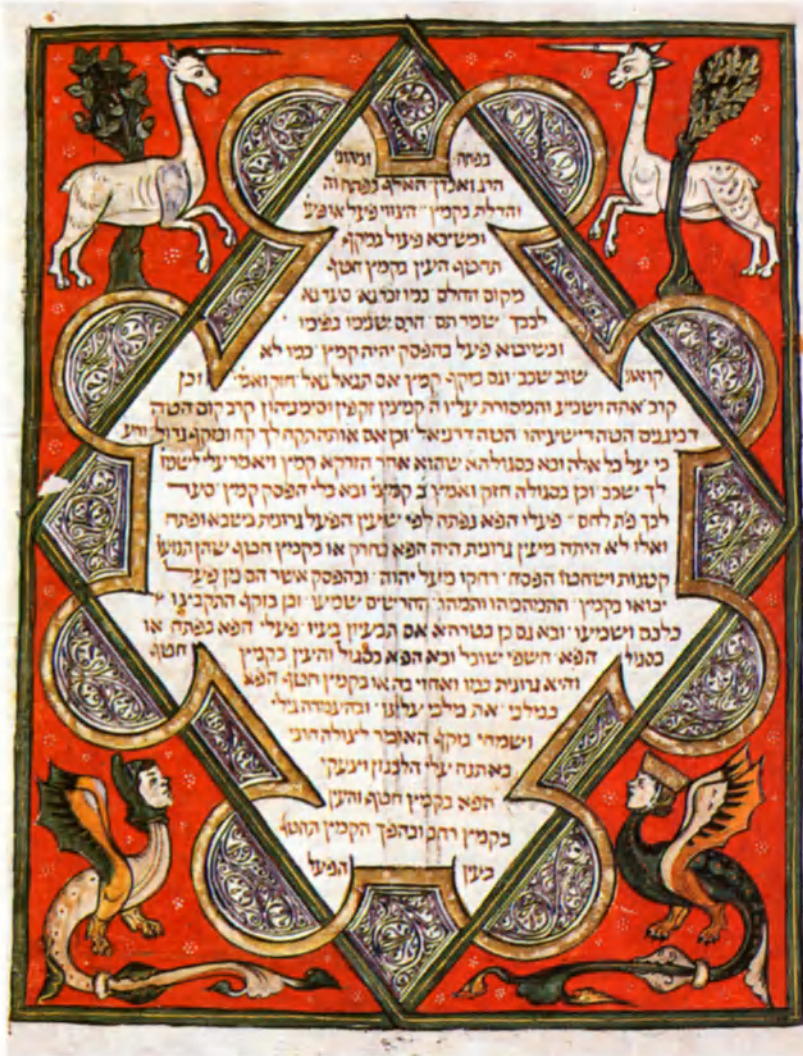 בפתח ומהוני
הרג ואבדן האלף בפתח וה
והדלת בקמץ הצווי פיעל או פע
וכשיבא פיעול במקף
תחטף העין בקמץ חטף
מקום החלם כמו זכר נא סעד נא
לבבך שמר תם הרס שנימו בפימו
וכשיבוא פיעל בהפסק יהיה קמץ כמו לא
קראתי שוב שכב וגם במקף קמץ אם תגאל גאל חזק ואמץ וכן
קרב אתה ושמע והמסורת עליו ה קמצין זקפין וסימניהון קרב קום הטה
דבינגים הטה דישעיהו הטה דדניאל וכן אם אותה תקח לך קח ומקף גדול
כי יעל כל אלה ובא בסגולתא שהוא אחי הזרקא קמץ ויאמר עלי לשמו
לך שכב וכן בסגולה חזק ואמץ ב קמצי ובא בלי הפסק קמץ סעד
לבך פת לחם פעלי הפא נפתה לפי שעין הפעל גרונית בשבא ופתח
ואלו לא היתה העין גרונית היה הפא בחרק או בקמץ חטף שהן תנועו
קטנות ושחטו הפסח רחקו מעל יהוה ובהפסק אשר הם מן פעל
יבואו בקמץ התמהמהו ותמהו החרשים שמעו וכן בזקף התקבצו
כלכם ושמעו ובא גם כן בטרחא אם תבעיון בעיו פעלי הפא בפתח או
בסגול הפא חשפי שובל ובא הפא בסגול והעין בקמץ חטף
והיא גרונית כמו ואחזי בה או בקמץ חטף הפא
במלכי את מלכי עלינו ובהעמדה גילי
ושמחי בזקף האומר לצולה חרבי
באתנח עלי הלבנון וצעקי
הפא בקמץ חטף והעין
בקמץ רחב ובהפך הקמץ תחטף
בעין הפעל